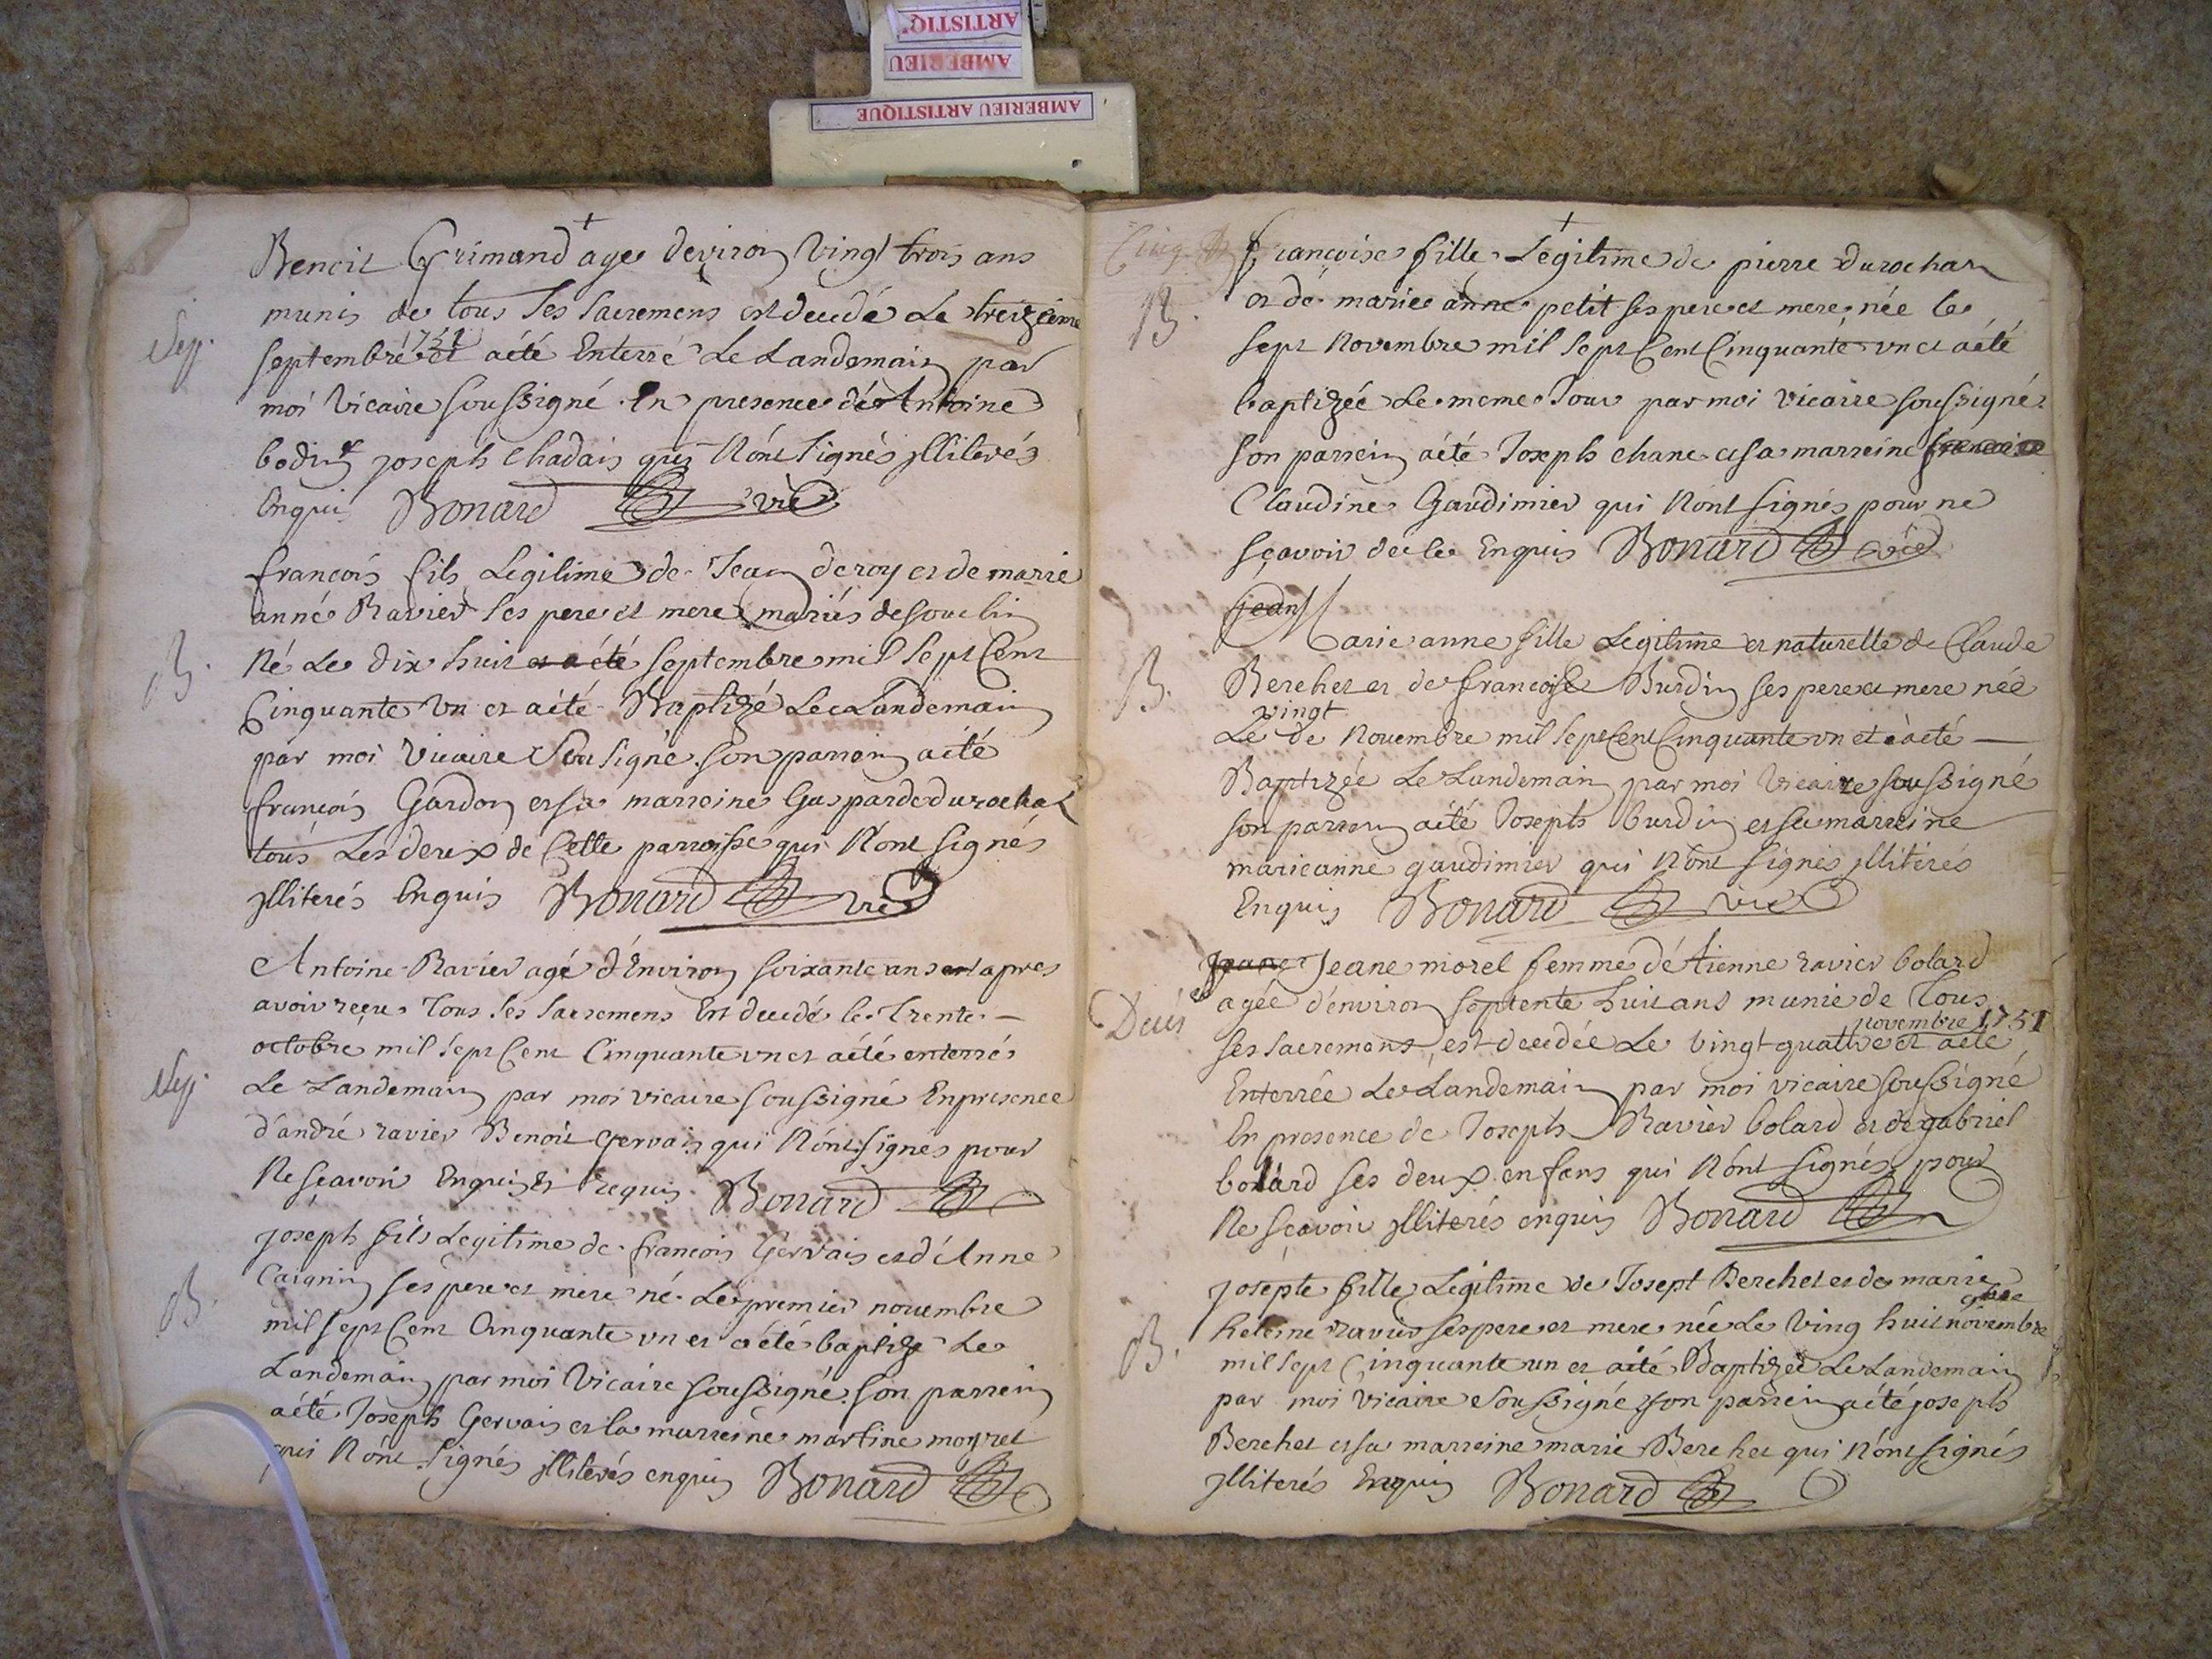 ARTISTIQ
AMBERIEU
AMBERIEU ARTISTIQUE
Benoit Grimand age deviron vingt trois ans
munis de tous ses sacremens est decedé le treizieme
Sep.
septembre 1751 et aété Enterré Le Landemain par
moi vicaire soussigné En presence de Antoine
bodin & joseph Chadais qui Nónt signés jlliterés
Enquis Bonard vic
françois fils Legitime de Jean deroy et de marie
anne Ravier ses pere et mere mariés de souclin
B.
Né Le dix huit et a été septembre mil sept Cent
Cinquante Un et aété Baptizé Le Landemain
par moi Vicaire Sousigné son parrein aété
françois Gardon et sa marreine Gasparde durochat
tous Les deux de Cette parroisse qui Nónt signés
jlliterés Enquis Bonard vic
Antoine Ravier agé d'Environ soixante ans et apres
avoir reçeu tous ses sacremens Est decedé le Trente
octobre mil sept Cent Cinquante un et aété enterrés
Sep.
Le Landemain par moi vicaire soussigné En presence
d'andré ravier Benoit Gervais qui Nónt signés pour
Ne sçavoir Enquis Et requis Bonard
joseph fils Legitime de françois Gervais et d'Anne
Caignin ses pere et mere né Le premier novembre
B.
mil sept Cent Cinquante un et aété baptizé Le
Landemain par moi Vicaire soussigné son parrein
aété Joseph Gervais et la marreine martine moyret
qui Nónt signés jlliterés enquis Bonard
françoise fille Legitime de pierre durochat
B.
et de marie anne petit ses pere et mere née le
sept Novembre mil sept Cent Cinquante un et aété
baptizée Le meme Jour par moi vicaire soussigné
son parrein aété Joseph chane et sa marreine francoise
Claudine Gaudimier qui Nónt signés pour ne
sçavoir de ce Enquis Bonard vic
jean
Marie anne fille Legitime et naturelle de Claude
B.
Berchet et de françoise Burdin ses pere et mere née
Le vingt de Novembre mil sept Cent Cinquante un et à aété
Baptizée Le Landemain par moi vicaire soussigné
son parrein aété Joseph burdin et sa marreine
marieanne gaudimier qui Nónt signés jlliterés
Enquis Bonard vic
Jeane Jeane morel femme détienne ravier bolard
Decés
agée d'environ septente huit ans munie de Tous
ses sacremens est decedée Le vingt quattre novembre 1751 et aété
Enterrée Le Landemain par moi vicaire soussigné
En presence de Joseph Ravier bolard et de gabriel
bolard ses deux enfans qui Nónt signés pour
Ne sçavoir jlliterés enquis Bonard
josepte fille Legitime de Josept Berchet et de marie
B.
heleine ravier ses pere et mere née Le Ving huit novembre
mil sept Cinquante un et aété Baptizée Le Landemain
par moi Vicaire Soussigné son parrein aété joseph
Berchet et sa marreine marie Berchet qui nónt signés
jlliterés Enquis Bonard